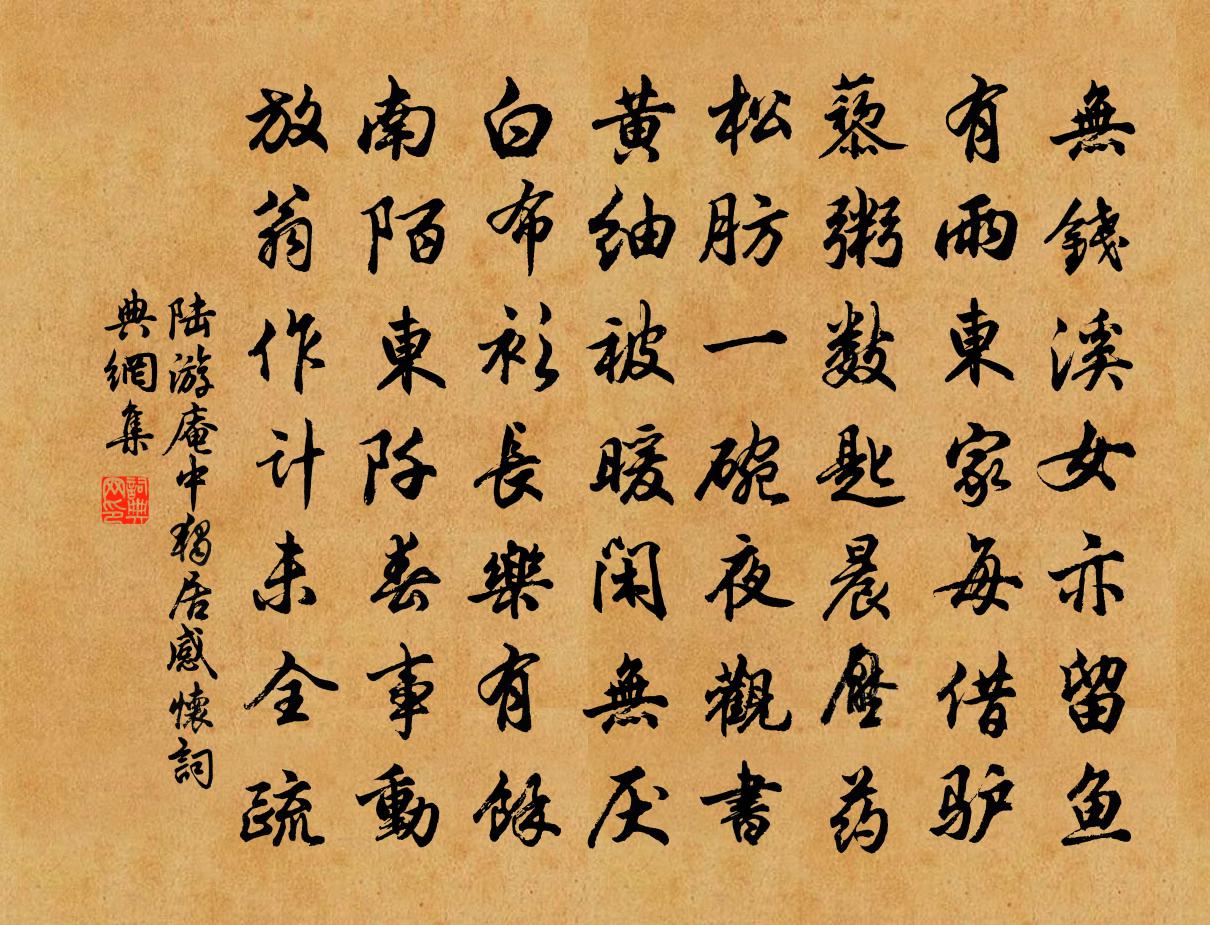 無錢溪女亦留魚
有雨東家每借驴
藜粥數匙晨壓药
松肪一碗夜觀書
黃紬被暖閑無厌
白布衫長樂有餘
南陌東阡春事動
放翁作计未全疏
陆游庵中獨居感懷詞
典網集
詞典网印